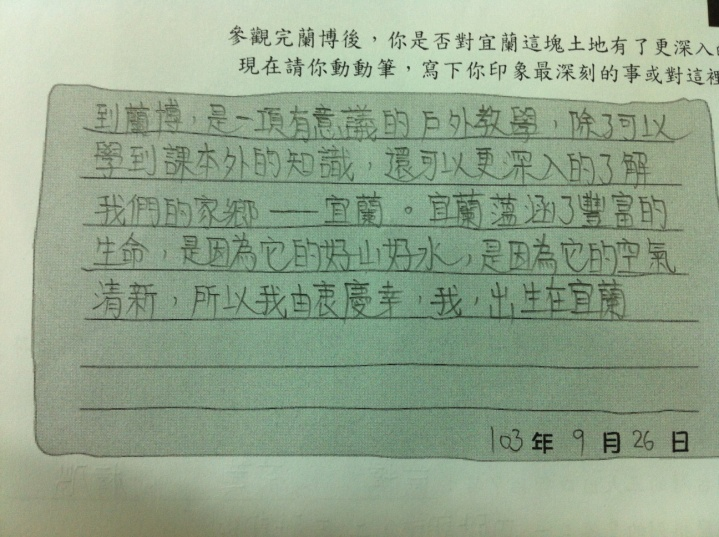 參觀完蘭博後，你是否對宜蘭這塊土地有了更深入
現在請你動動筆，寫下你印象最深刻的事或對這裡
到蘭博，是一項有意議的戶外教學，除了可以
學到課本外的知識，還可以更深入的了解
我們的家鄉——宜蘭。宜蘭蘊涵了豐富的
生命，是因為它的好山好水，是因為它的空氣
清新，所以我由衷慶幸，我，出生在宜蘭
103年9月26日